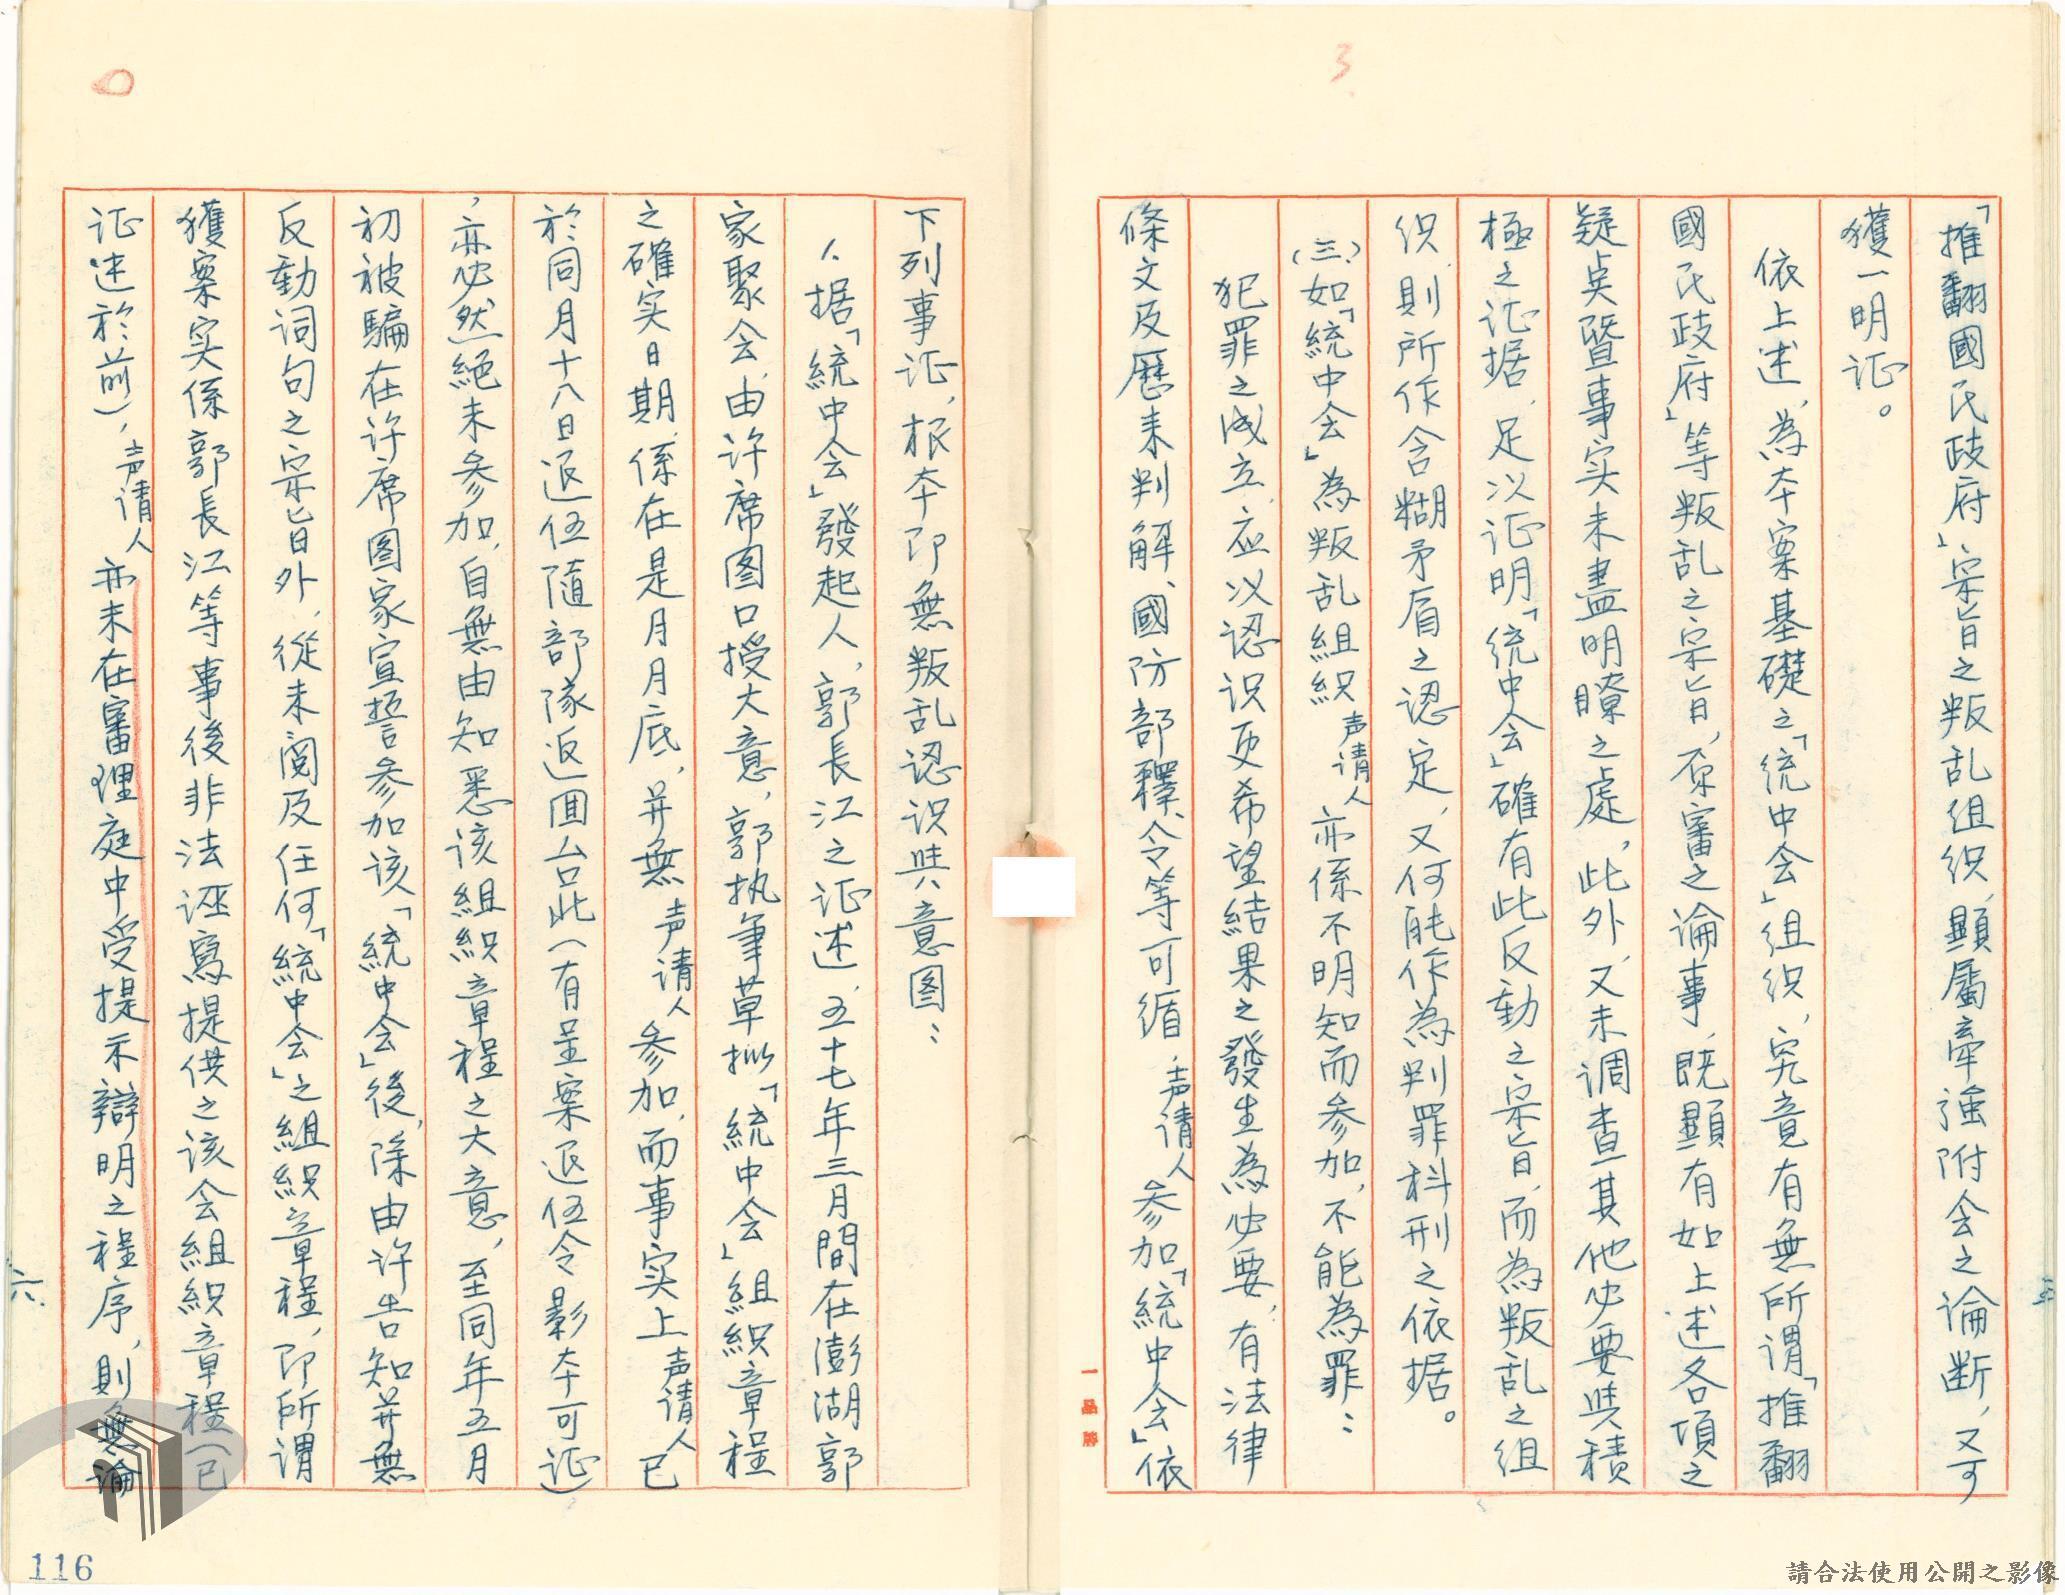 3
「推翻國民政府」宗旨之叛乱组织,顯屬牽強附会之論断,又可
獲一明证。
依上述,為本案基礎之「统中会」组织,究竟有無所谓「推翻
國民政府」等叛乱之宗旨,原審之論事,既顯有如上述各項之
疑点暨事实未盡明瞭之處,此外,又未调查其他必要與積
極之证据,足以证明「统中会」確有此反動之宗旨,而為叛乱之组
织,則所作含糊矛盾之認定,又何能作為判罪科刑之依据。
(三、)如「統中会」為叛乱組織声请人亦係不明知而参加,不能為罪:
犯罪之成立,应以认识更希望結果之發生為必要,有法律
條文及歷来判解、國防部釋令等可循,声请人参加「統中会」依
一品牌
五
下列事证,根本即無叛乱认识與意图:
1、据「統中会」發起人,郭長江之证述,五十七年三月間在澎湖郭
家聚会,由许席图口授大意,郭执筆草拟「統中会」組織章程
之確实日期,係在是月月底,并無声请人参加,而事实上声请人已
於同月十八日退伍隨部隊返囬台北(有呈案退伍令影本可证)
,亦必然絕未参加,自無由知悉该組織章程之大意,至同年五月
初被騙在许席图家宣誓参加该「統中会」後,除由许告知并無
反動词句之宗旨外,從未閱及任何「統中会」之組織章程,即所谓
獲案实係郭長江等事後非法诬寫提供之该会組織章程(已
证述於前),声请人亦未在審理庭中受提示辯明之程序,則無論
六
116
請合法使用公開之影像